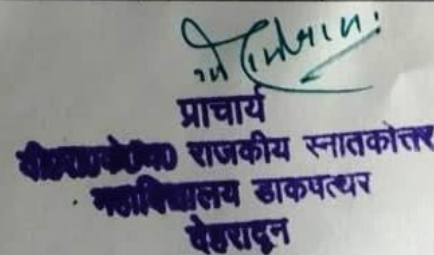 प्राचार्य
राजकीय स्नातकोत्तर
महाविद्यालय डाकपत्थर
देहरादून